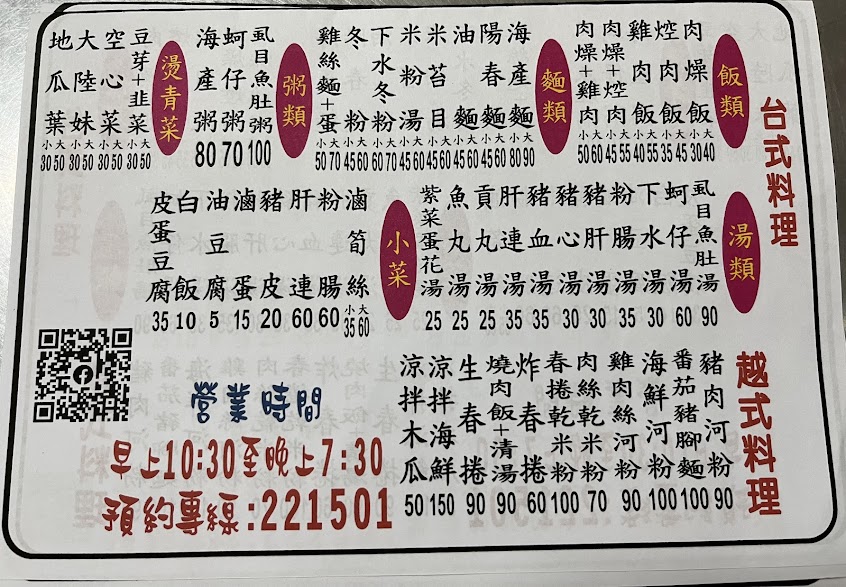 台式料理
飯類
肉燥飯 小30 大40
焢肉飯 小35 大45
雞肉飯 小40 大55
肉燥+焢肉 小45 大55
肉燥+雞肉 小50 大60
麵類
海產麵 小80 大90
陽春麵 小45 大60
油麵 小45 大60
米苔目 小45 大60
米粉湯 小45 大60
下水冬粉 小60 大70
冬粉 小45 大60
雞絲麵+蛋 小50 大70
粥類
虱目魚肚粥 100
蚵仔粥 70
海產粥 80
燙青菜
豆芽+韭菜 小30 大50
空心菜 小30 大50
大陸妹 小30 大50
地瓜葉 小30 大50
湯類
虱目魚肚湯 90
蚵仔湯 60
下水湯 30
粉腸湯 35
豬肝湯 30
豬心湯 30
豬血湯 35
肝連湯 35
貢丸湯 25
魚丸湯 25
紫菜蛋花湯 25
小菜
滷筍絲 小35 大60
粉腸 60
肝連 60
豬皮 20
滷蛋 15
油豆腐 5
白飯 10
皮蛋豆腐 35
越式料理
豬肉河粉 90
番茄豬腳麵 100
海鮮河粉 100
雞肉絲河粉 90
肉絲乾米粉 70
春捲乾米粉 100
炸春捲 60
燒肉飯+清湯 90
生春捲 90
涼拌海鮮 150
涼拌木瓜 50
營業時間
早上10:30至晚上7:30
預約專線:221501